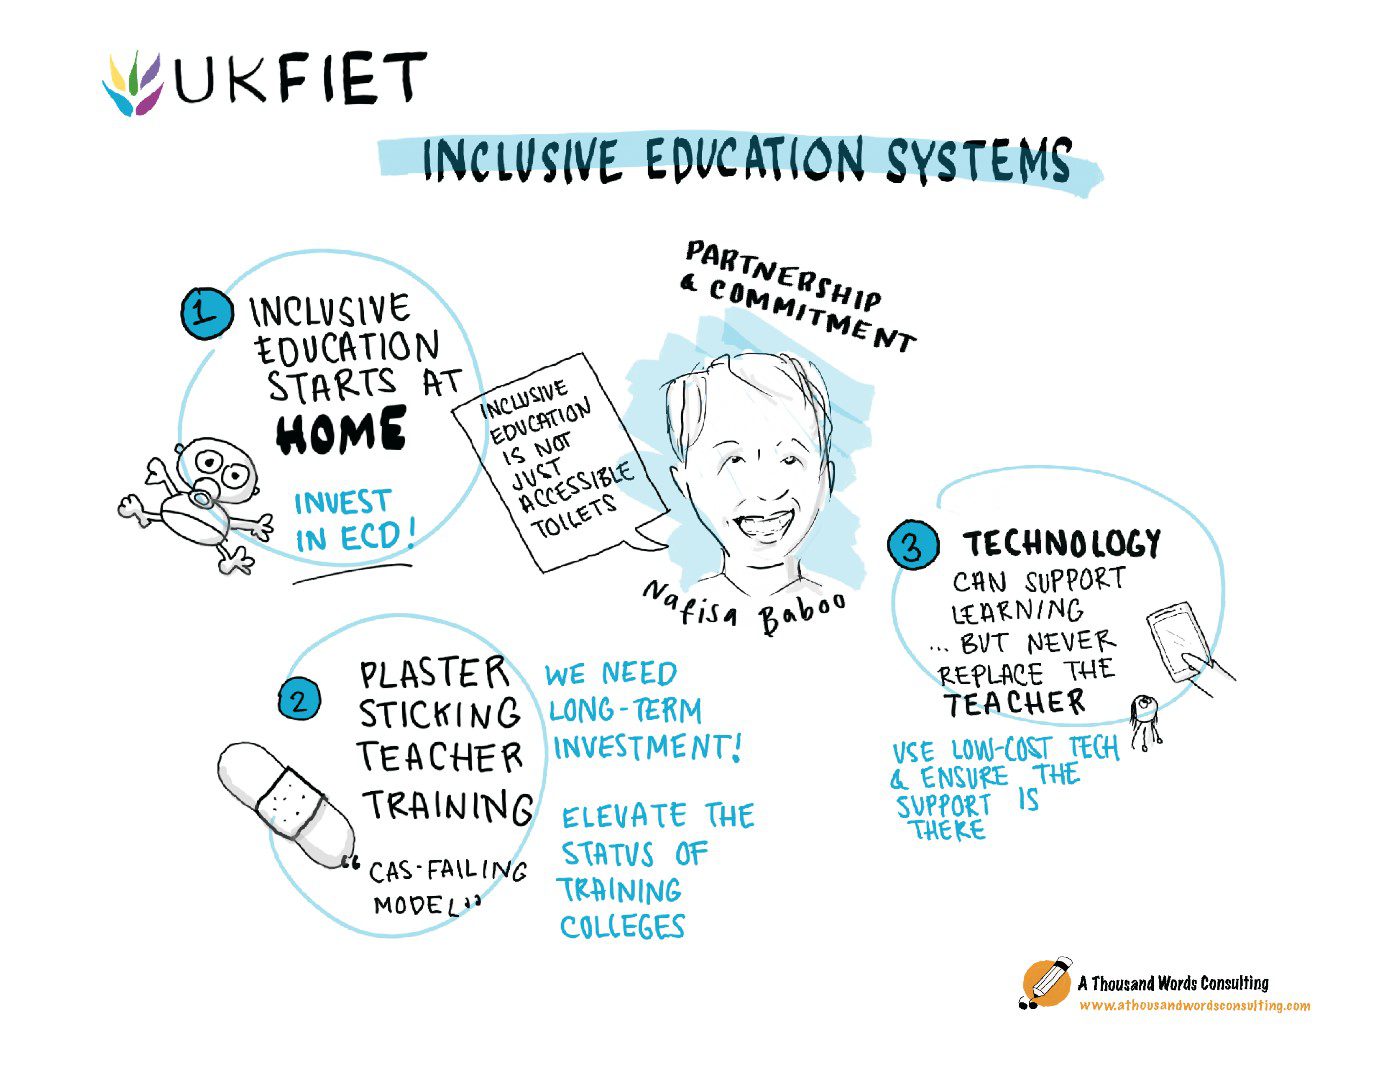 UKFIET
INCLUSIVE EDUCATION SYSTEMS
PARTNERSHIP
& COMMITMENT
1
INCLUSIVE
EDUCATION
STARTS AT
HOME
INVEST
IN ECD!
INCLUSIVE
EDUCATION
IS NOT
JUST
ACCESSIBLE
TOILETS
Nafisa Baboo
2
PLASTER
STICKING
TEACHER
TRAINING
"CAS-FAILING
MODEL"
WE NEED
LONG-TERM
INVESTMENT!
ELEVATE THE
STATUS OF
TRAINING
COLLEGES
3
TECHNOLOGY
CAN SUPPORT
LEARNING
... BUT NEVER
REPLACE THE
TEACHER
USE LOW-COST TECH
& ENSURE THE
SUPPORT IS
THERE
A Thousand Words Consulting
www.athousandwordsconsulting.com